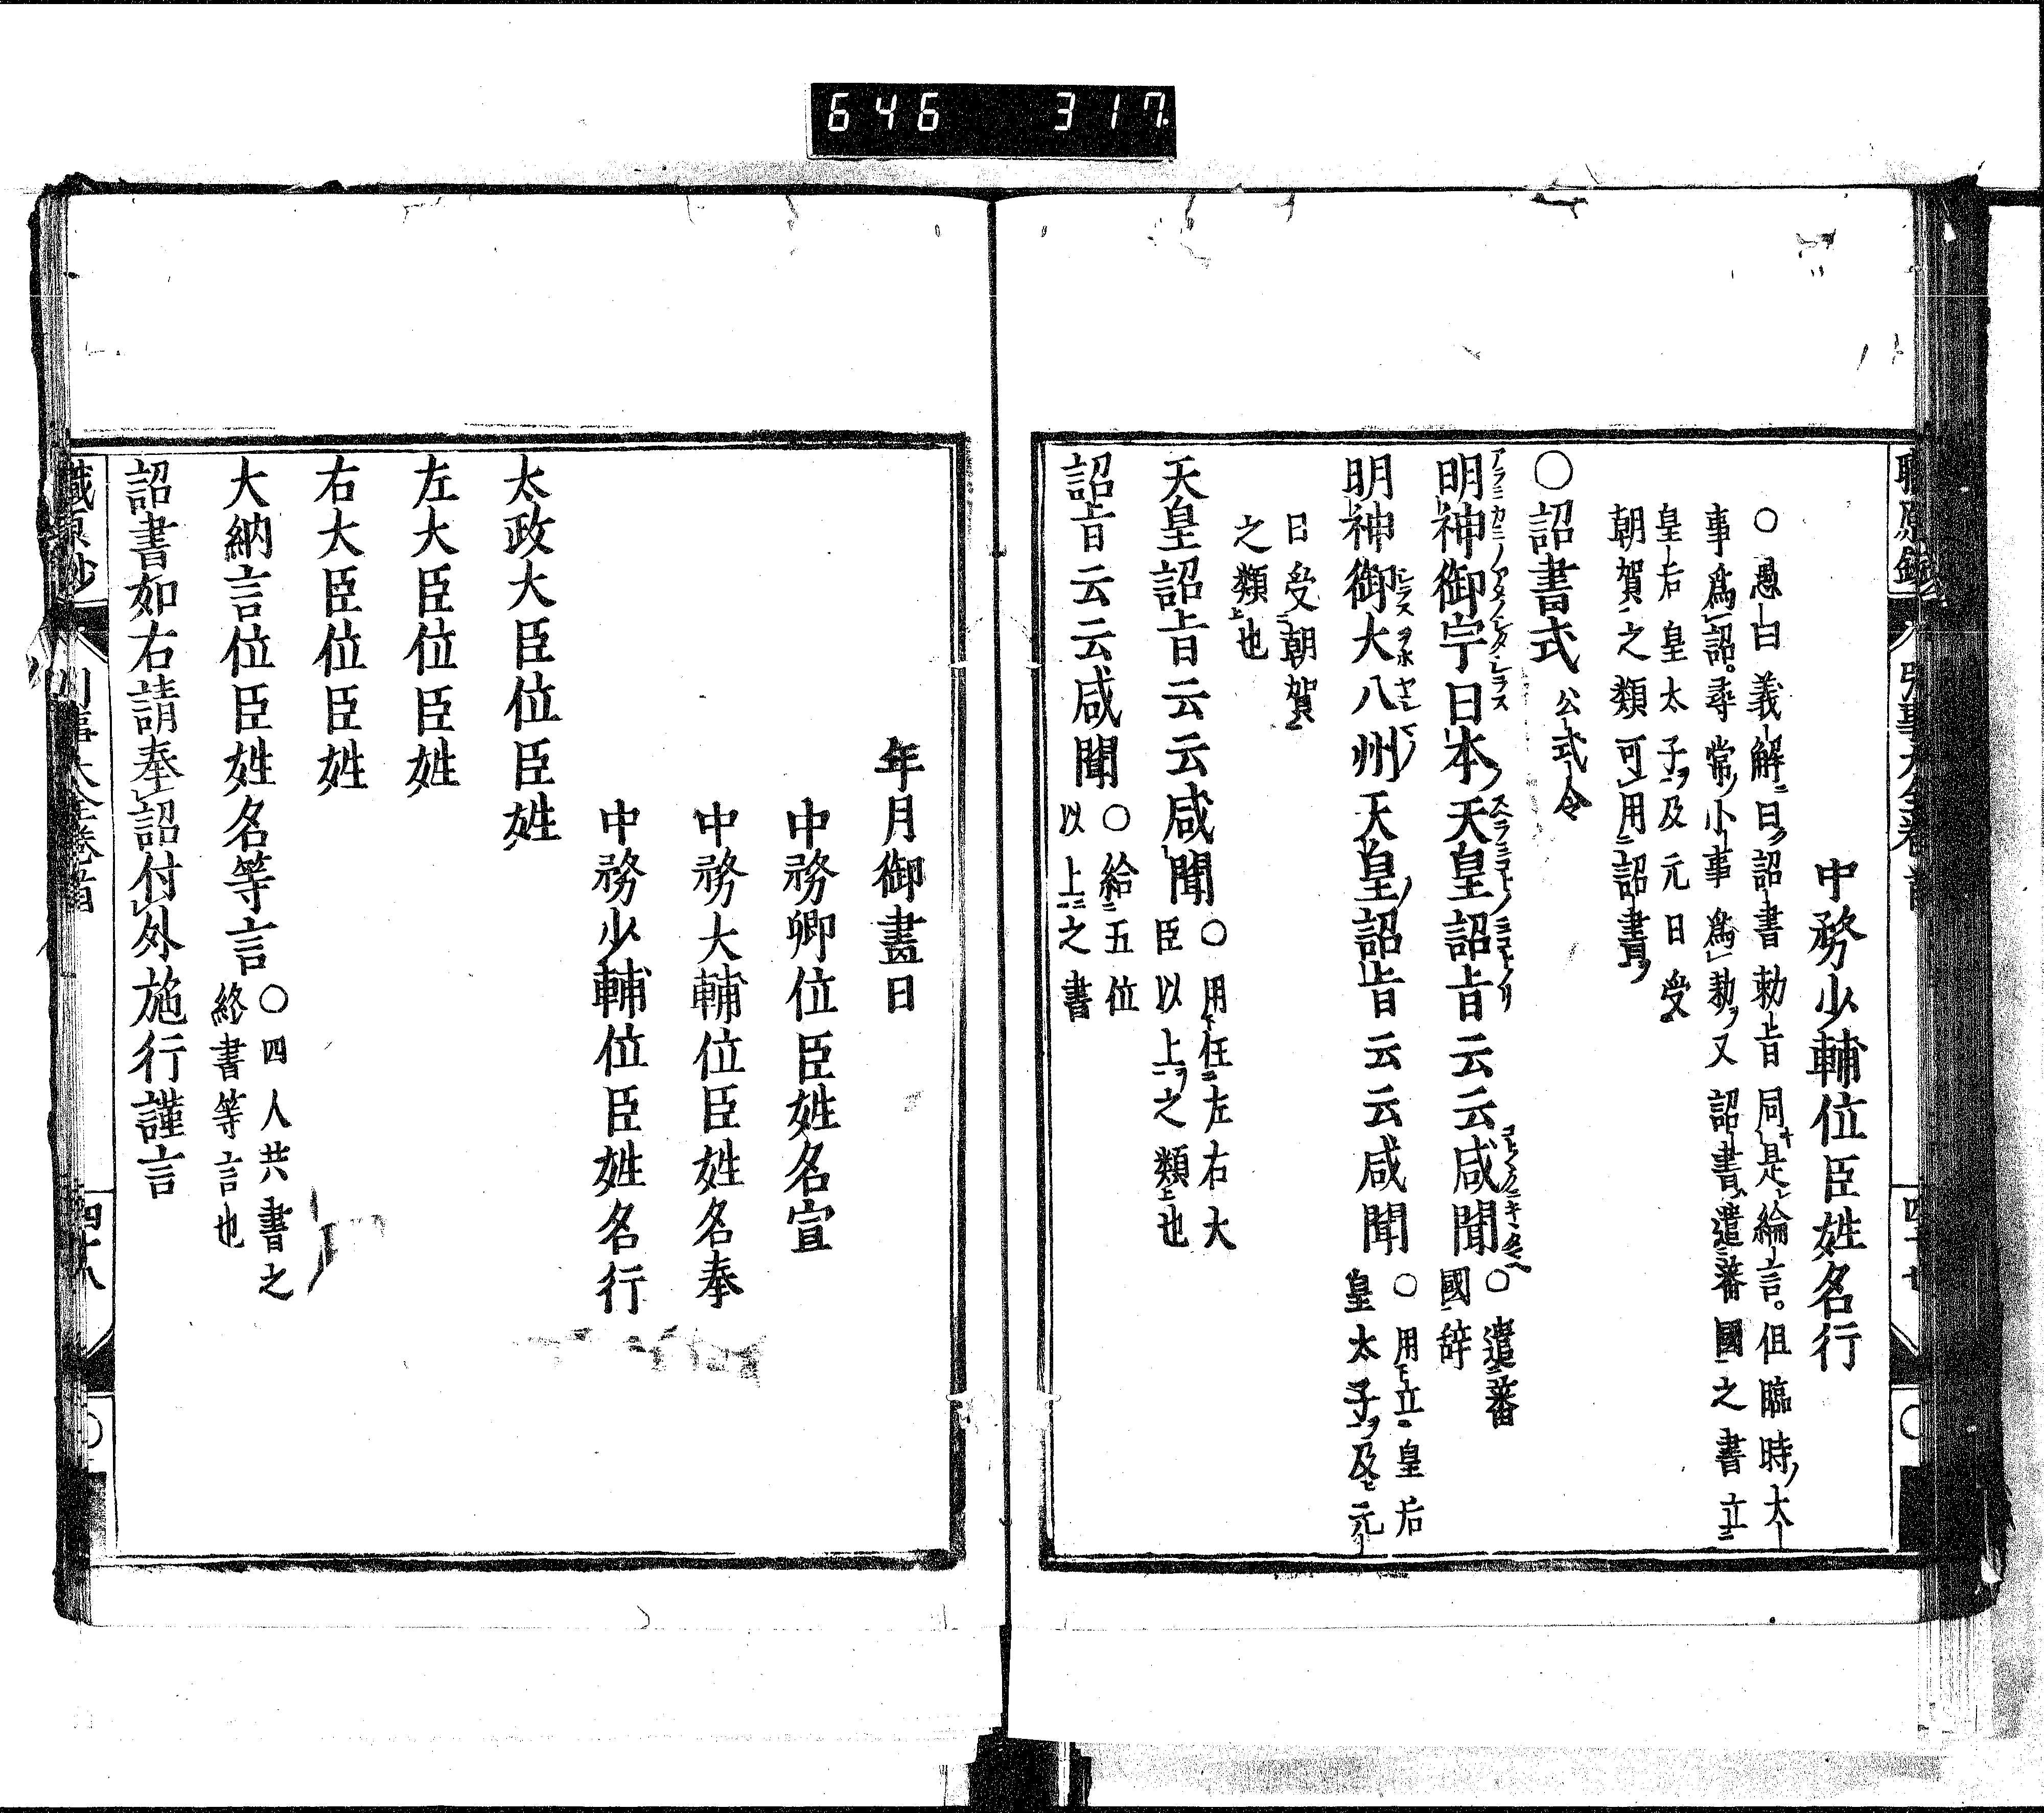 646 317
中務少輔位臣姓名行
○愚曰義解曰詔書勅旨同是綸言。但臨時大
事為詔。尋常小事為勅又詔書遣蕃國之書立
皇后皇太子及元日受
朝賀之類可用詔書
○詔書式 公式令
明神御宇日本天皇詔旨云云咸聞 ○遣蕃國辞
明神御大八州天皇詔旨云云咸聞 ○用立皇后皇太子及元
日受朝賀
之類也
天皇詔旨云云咸聞 ○用任左右大臣以上之類也
詔旨云云咸聞 ○給五位以上之書
年月御畫日
中務卿位臣姓名宣
中務大輔位臣姓名奉
中務少輔位臣姓名行
太政大臣位臣姓
左大臣位臣姓
右大臣位臣姓
大納言位臣姓名等言 ○四人共書之終書等言也
詔書如右請奉詔付外施行謹言
職原抄 引事大全卷首 四十八